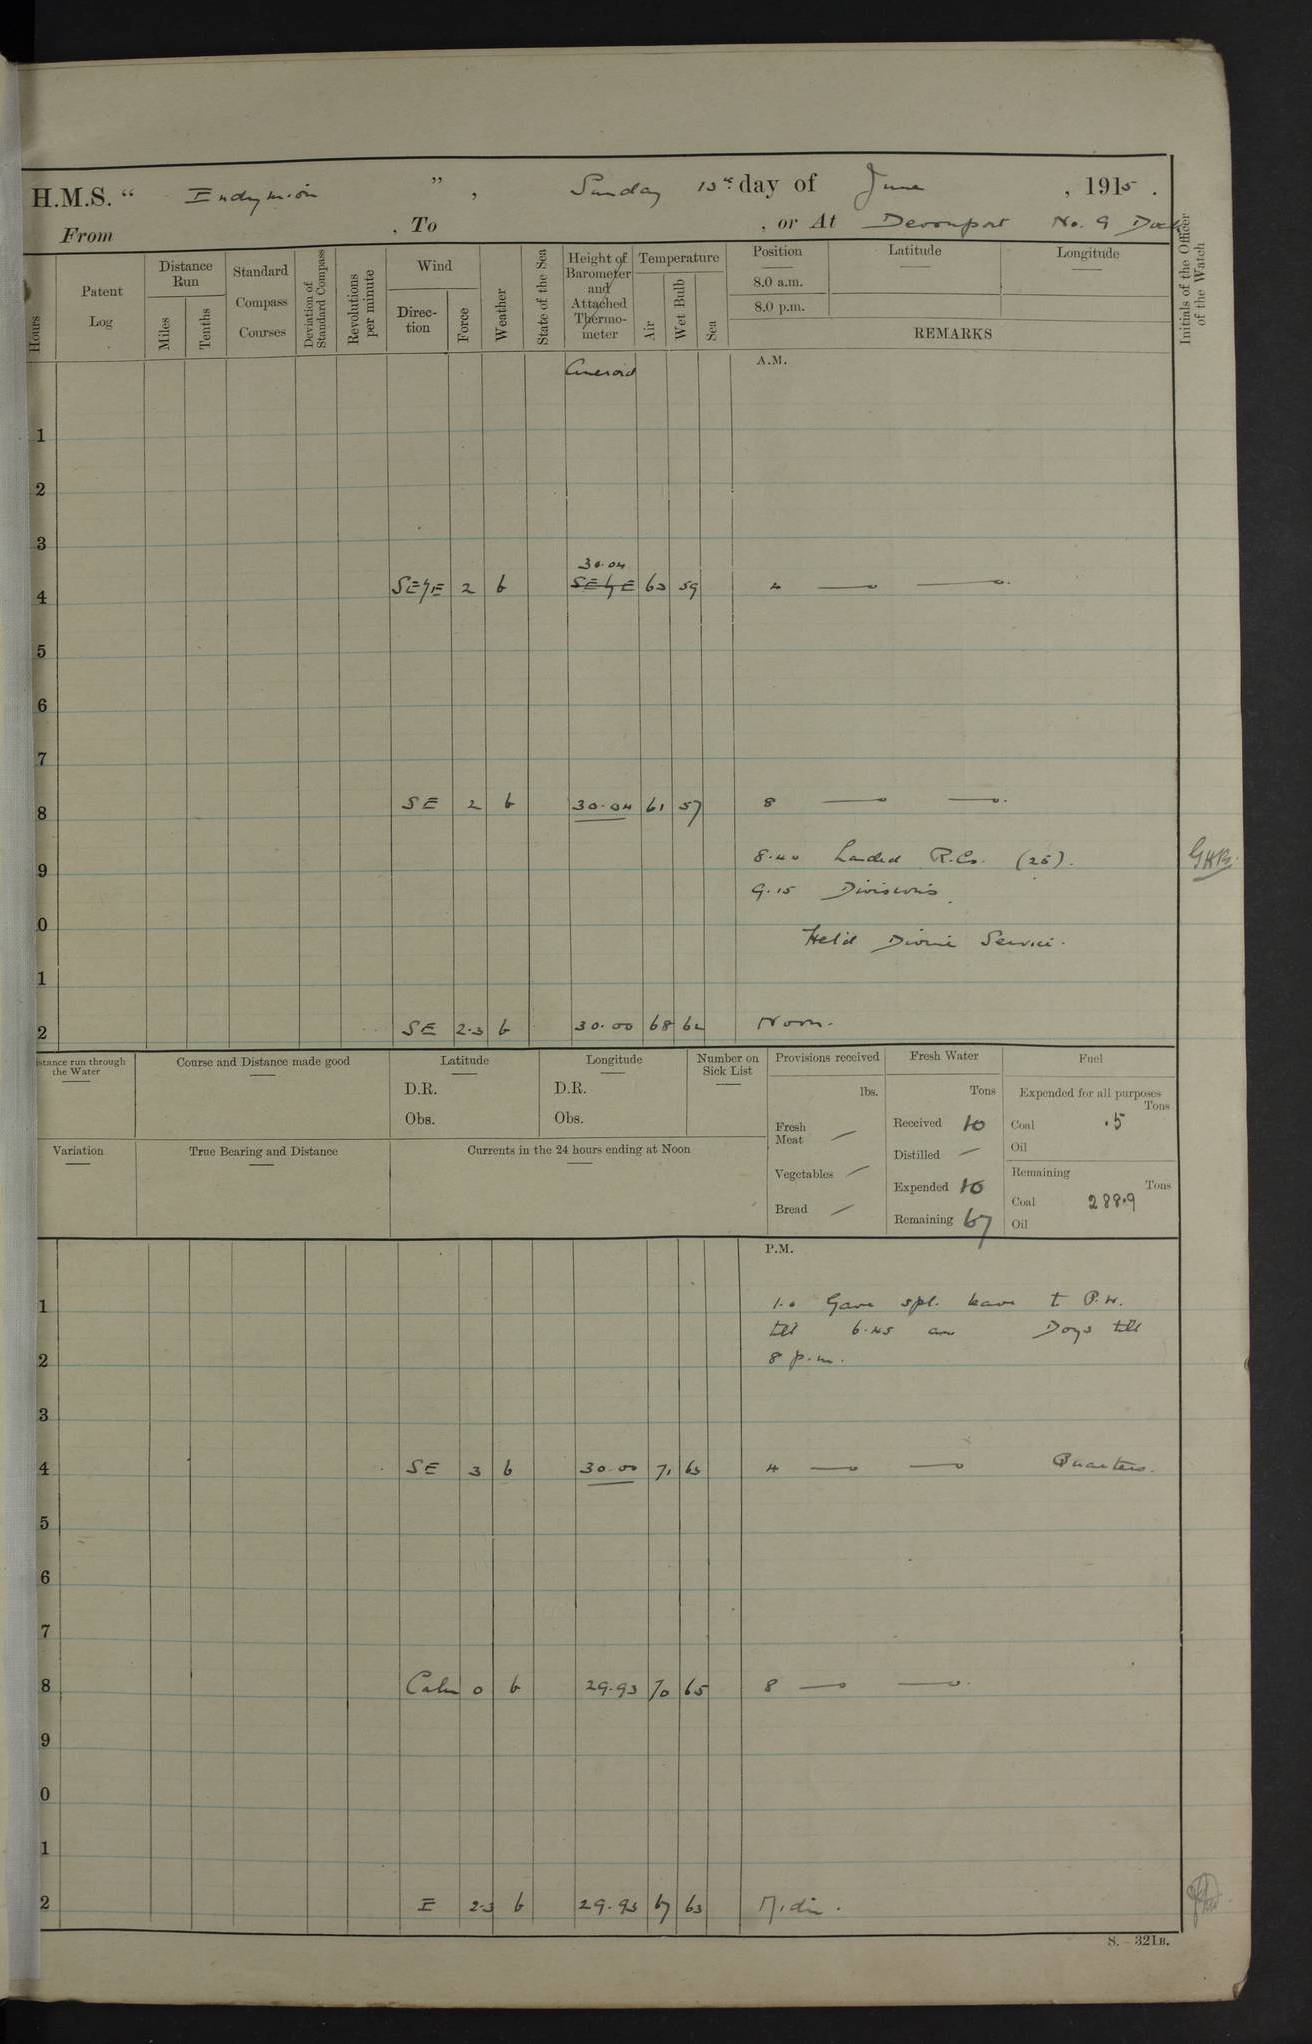 H.M.S. “ Endymion ” , Sunday 13th day of June , 1915 .
From , To , or At Devonport No. 9 Dock
Hours
Patent Log
Distance Run
Miles
Tenths
Standard Compass Courses
Deviation of Standard Compass
Revolutions per minute
Wind
Direc-tion
Force
Weather
State of the Sea
Height of Barometer and Attached Thermo-meter
Temperature
Air
Wet Bulb
Sea
Position
8.0 a.m.
8.0 p.m.
Latitude
Longitude
REMARKS
Initials of the Officer of the Watch
Aneroid
A.M.
1
2
3
30.04
4 SE/E 2 b SE/E 63 59 4
5
6
7
8 SE 2 b 30.04 61 57 8
8.40 Landed R.Cs. (25).
9 G.H.B.
9.15 Divisions
0 Held Divine Service.
1
2 SE 2.3 b 30.00 68 62 Noon.
stance run through the Water
Course and Distance made good
Latitude
D.R.
Obs.
Longitude
D.R.
Obs.
Number on Sick List
Variation
True Bearing and Distance
Currents in the 24 hours ending at Noon
Provisions received
lbs.
Fresh Meat —
Vegetables —
Bread —
Fresh Water
Tons
Received 10
Distilled —
Expended 10
Remaining 67
Fuel
Expended for all purposes
Tons
Coal .5
Oil
Remaining
Tons
Coal 288.9
Oil
P.M.
1 1.0 Gave spl. leave t P.W.
till 6.45 am Boys till
2 8 p.m.
3
4 SE 3 b 30.00 71 63 4 Quarters.
5
6
7
8 Calm 0 b 29.93 70 65 8
9
0
1
2 E 2.3 b 29.93 67 63 Midn.
S. — 321B.